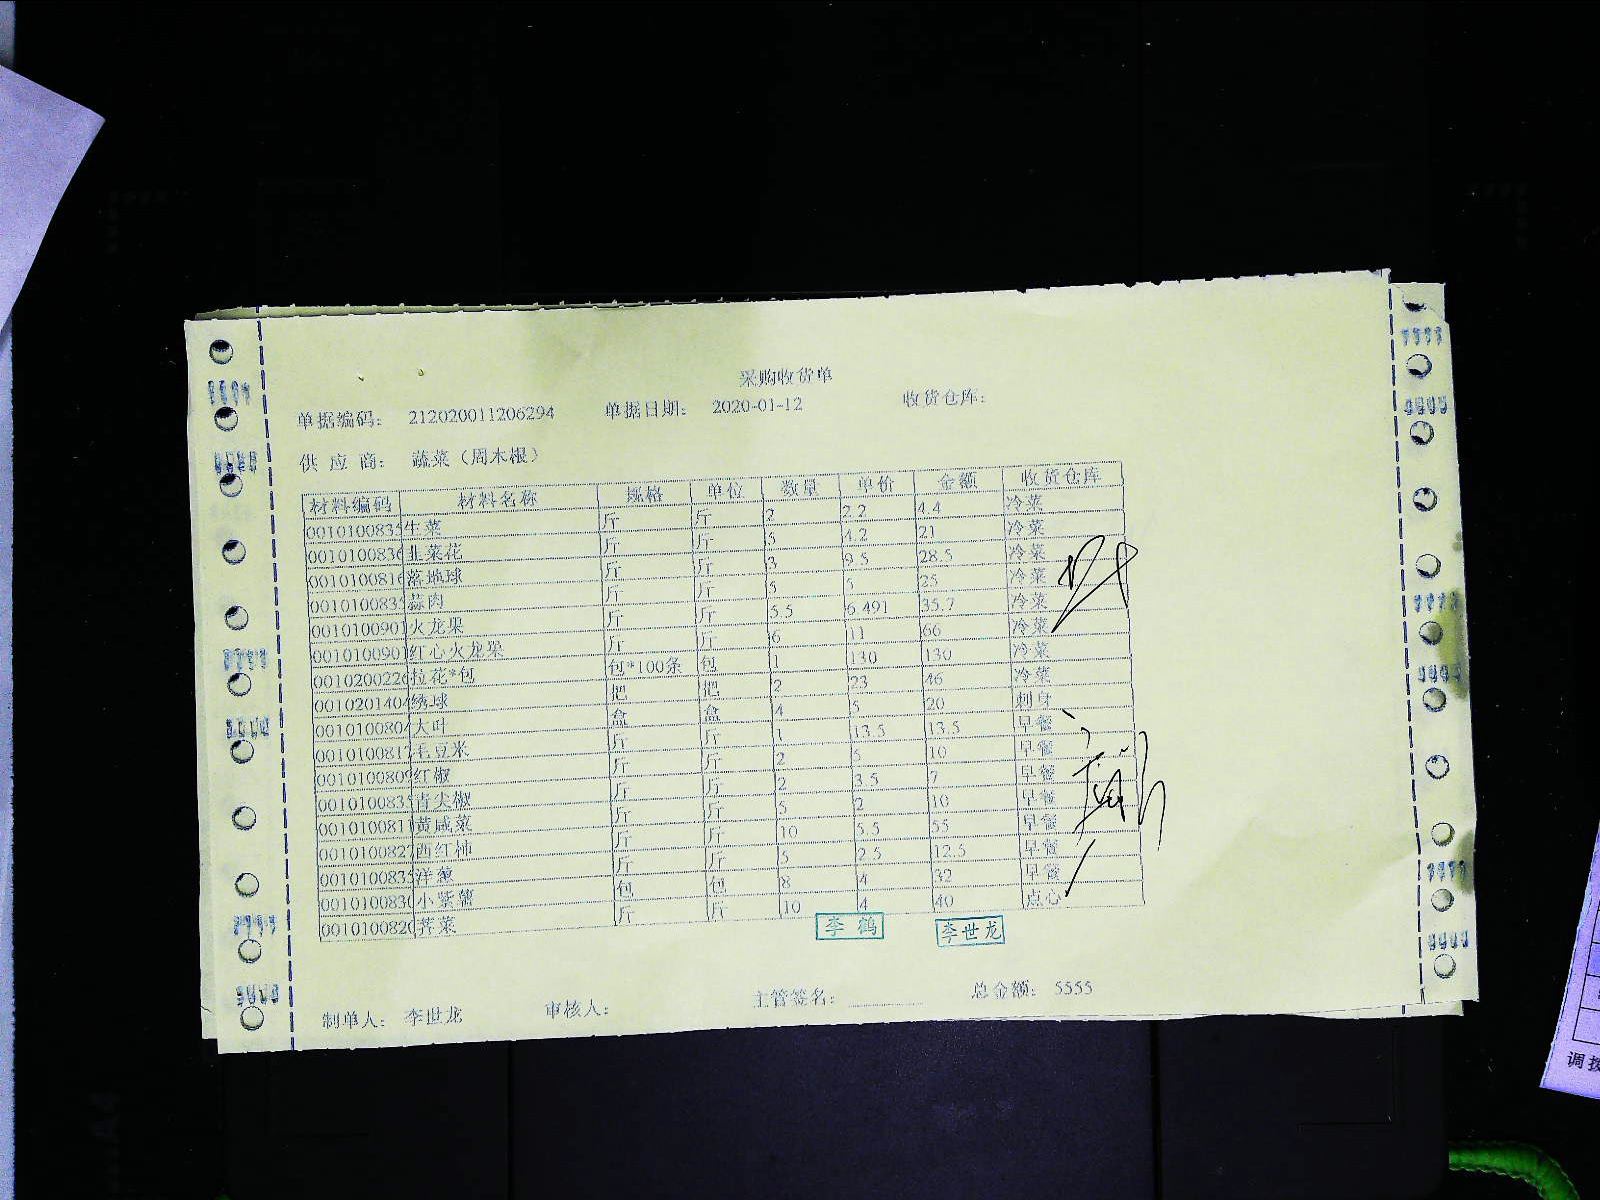 采购收货单
单据编码: 212020011206294 单据日期: 2020-01-12 收货仓库:
供 应 商: 蔬菜（周木根）
材料编码 材料名称 规格 单位 数量 单价 金额 收货仓库
0010100835 生菜 斤 斤 2 2.2 4.4 冷菜
0010100836 韭菜花 斤 斤 5 4.2 21 冷菜
0010100816 落地球 斤 斤 3 9.5 28.5 冷菜
0010100835 蒜肉 斤 斤 5 5 25 冷菜
0010100901 火龙果 斤 斤 5.5 6.491 35.7 冷菜
0010100901 红心火龙果 斤 斤 6 11 66 冷菜
0010200226 拉花*包 包*100条 包 1 130 130 冷菜
0010201404 绣球 把 把 2 23 46 冷菜
0010100804 大叶 盒 盒 4 5 20 刺身
0010100817 毛豆米 斤 斤 1 13.5 13.5 早餐
0010100809 红椒 斤 斤 2 5 10 早餐
0010100835 青尖椒 斤 斤 2 3.5 7 早餐
0010100811 黄咸菜 斤 斤 5 2 10 早餐
0010100827 西红柿 斤 斤 10 5.5 55 早餐
0010100835 洋葱 斤 斤 5 2.5 12.5 早餐
0010100830 小紫薯 包 包 8 4 32 早餐
0010100820 荠菜 斤 斤 10 4 40 点心
李鹤 李世龙
制单人: 李世龙 审核人: 主管签名: 总金额: 5555
调拨